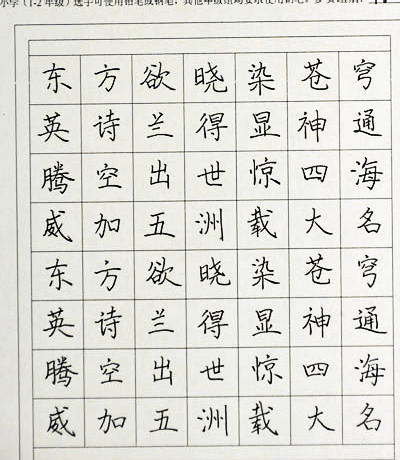 小学（1-2年级）选手可使用铅笔或钢笔，其他年级组均要求使用钢笔。
东方欲晓染苍穹
英诗兰得显神通
腾空出世惊四海
威加五洲载大名
东方欲晓染苍穹
英诗兰得显神通
腾空出世惊四海
威加五洲载大名